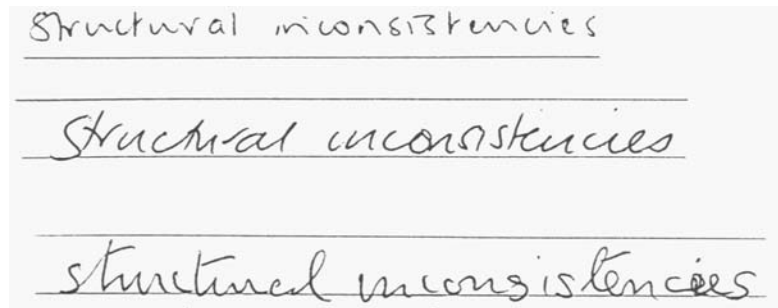 Structural inconsistencies
Structural inconsistencies
structural inconsistencies